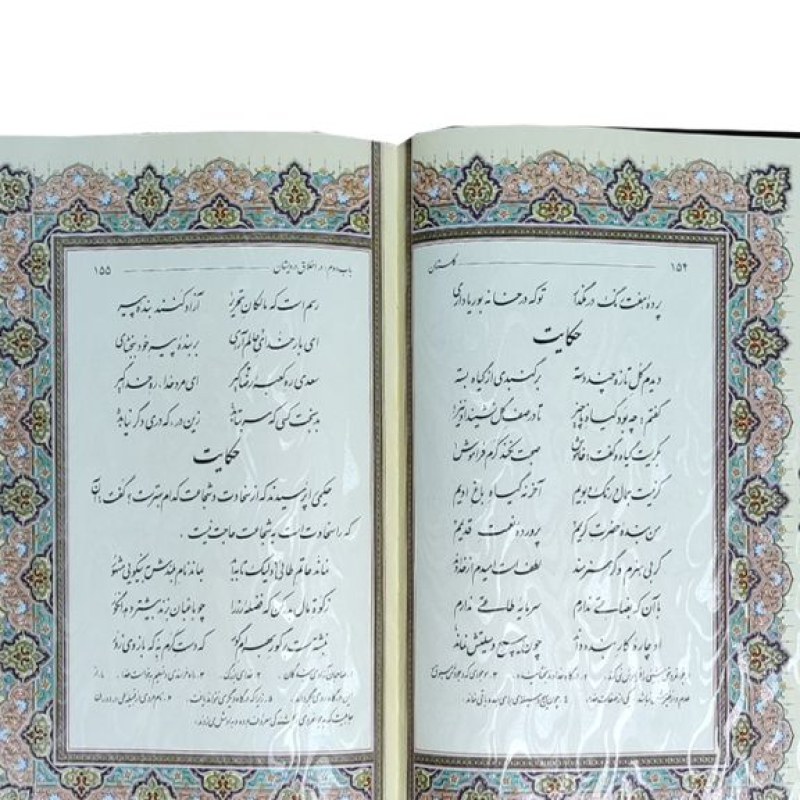 ۱۵۴ گلستان
پرده هفت رنگ در مگذار تو که در خانه بوریا داری
حکایت
دیدم گل تازه چند دسته بر گنبدی از گیاه بسته
گفتم: چه بود گیاه ناچیز تا در صف گل نشیند او نیز
بگریست گیاه و گفت: خاموش صحبت نکند کرم فراموش
گر نیست جمال و رنگ و بویم آخر نه گیاه باغ اویم
من بنده حضرت کریم پرورده نعمت قدیم
گر بی هنرم و گر هنرمند لطف است امیدم از خداوند
با آن که بضاعتی ندارم سرمایه طاعتی ندارم
او چاره کار بنده داند چون هیچ وسیلتش نماند
باب دوم: در اخلاق درویشان ۱۵۵
رسم است که مالکان تحریر آزاد کنند بنده پیر
ای بار خدای عالم آرای بر بنده پیر خود ببخشای
سعدی ره کعبه رضا گیر ای مرد خدا، ره خدا گیر
بدبخت کسی که سر بتابد زین در، که دری دگر نیابد
حکایت
حکیمی را پرسیدند که از سخاوت و شجاعت کدام بهتر است؟ گفت: آن
که را سخاوت است به شجاعت حاجت نیست.
نماند حاتم طائی ولیک تا به ابد بماند نام بلندش به نیکویی مشهور
زکوة مال به در کن که فضله رز را چو باغبان بزند بیشتر دهد انگور
نبشته است بر گور بهرام گور که دست کرم به که بازوی زور